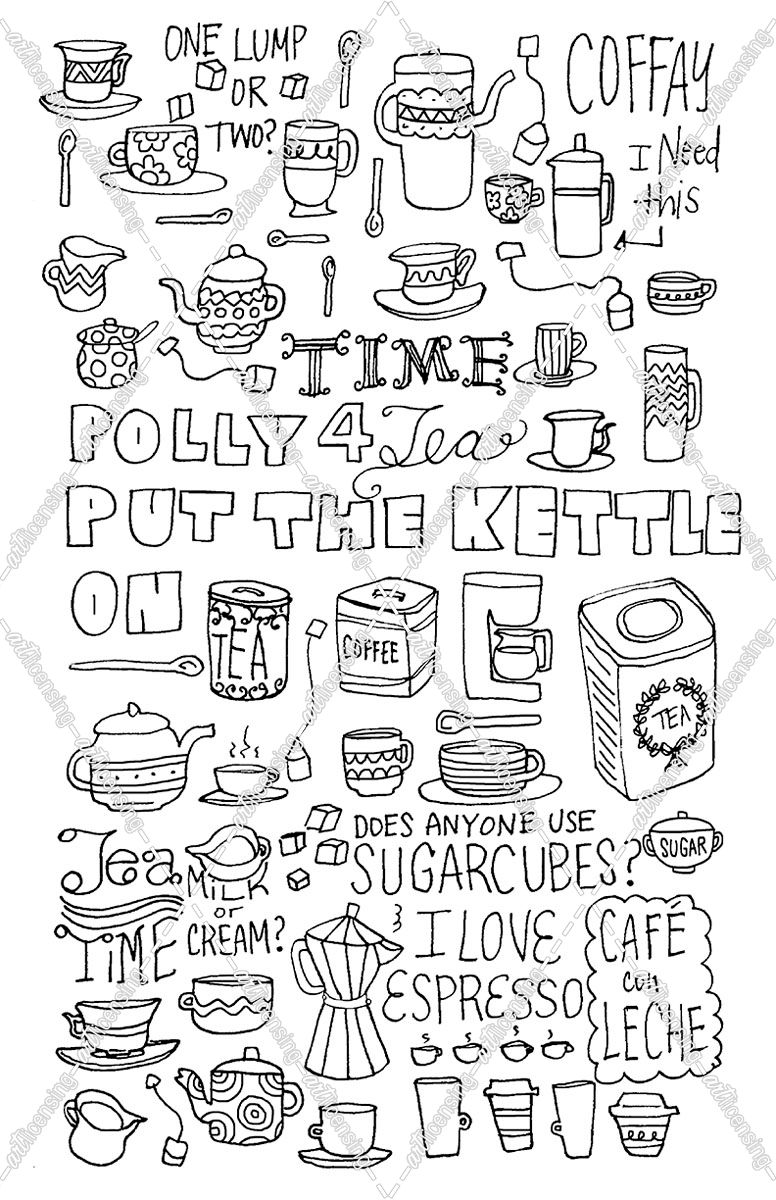 ONE LUMP
OR
TWO?
COFFAY
I Need
this
TIME
POLLY 4 Tea
PUT THE KETTLE
ON
TEA
COFFEE
TEA
Tea
TIME
MiLK
or
CREAM?
DOES ANYONE USE
SUGARCUBES?
SUGAR
I LOVE
ESPRESSO
CAFÉ
con
LECHE
artlicensing